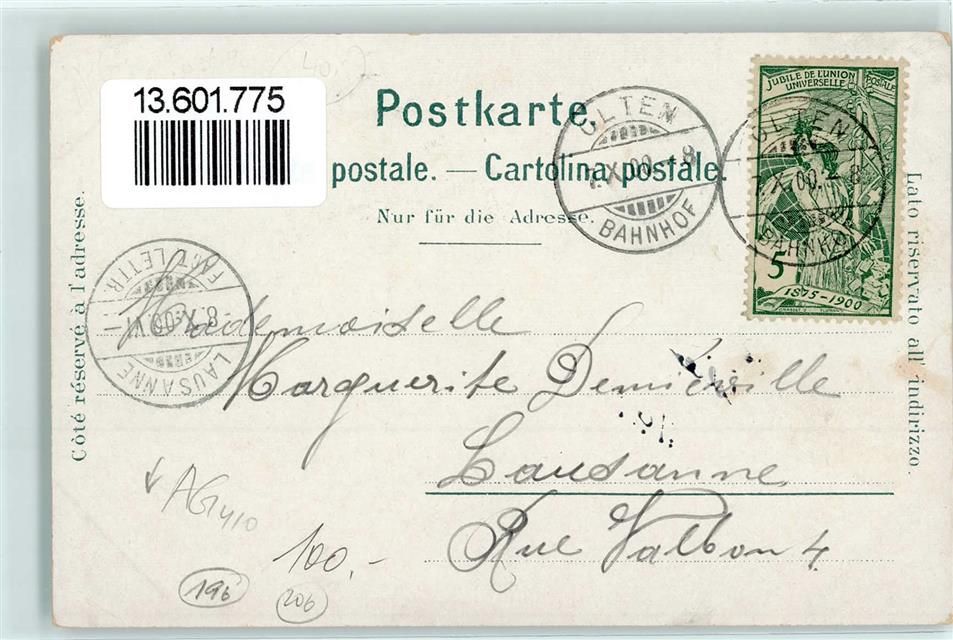 13.601.775
Postkarte.
postale. — Cartolina postale.
Nur für die Adresse.
Côté réservé à l'adresse.
Lato riservato all' indirizzo.
JUBILÉ DE L'UNION POSTALE
UNIVERSELLE
5
1875-1900
OLTEN
7.X.00.-8
BAHNHOF
OLTEN
7.X.00.-8
BAHNHOF
LAUSANNE
8.X.00.VI
Mademoiselle
Marguerite Demiéville
Lausanne
Rue Valbon 4.
AG 410
100.-
196
206